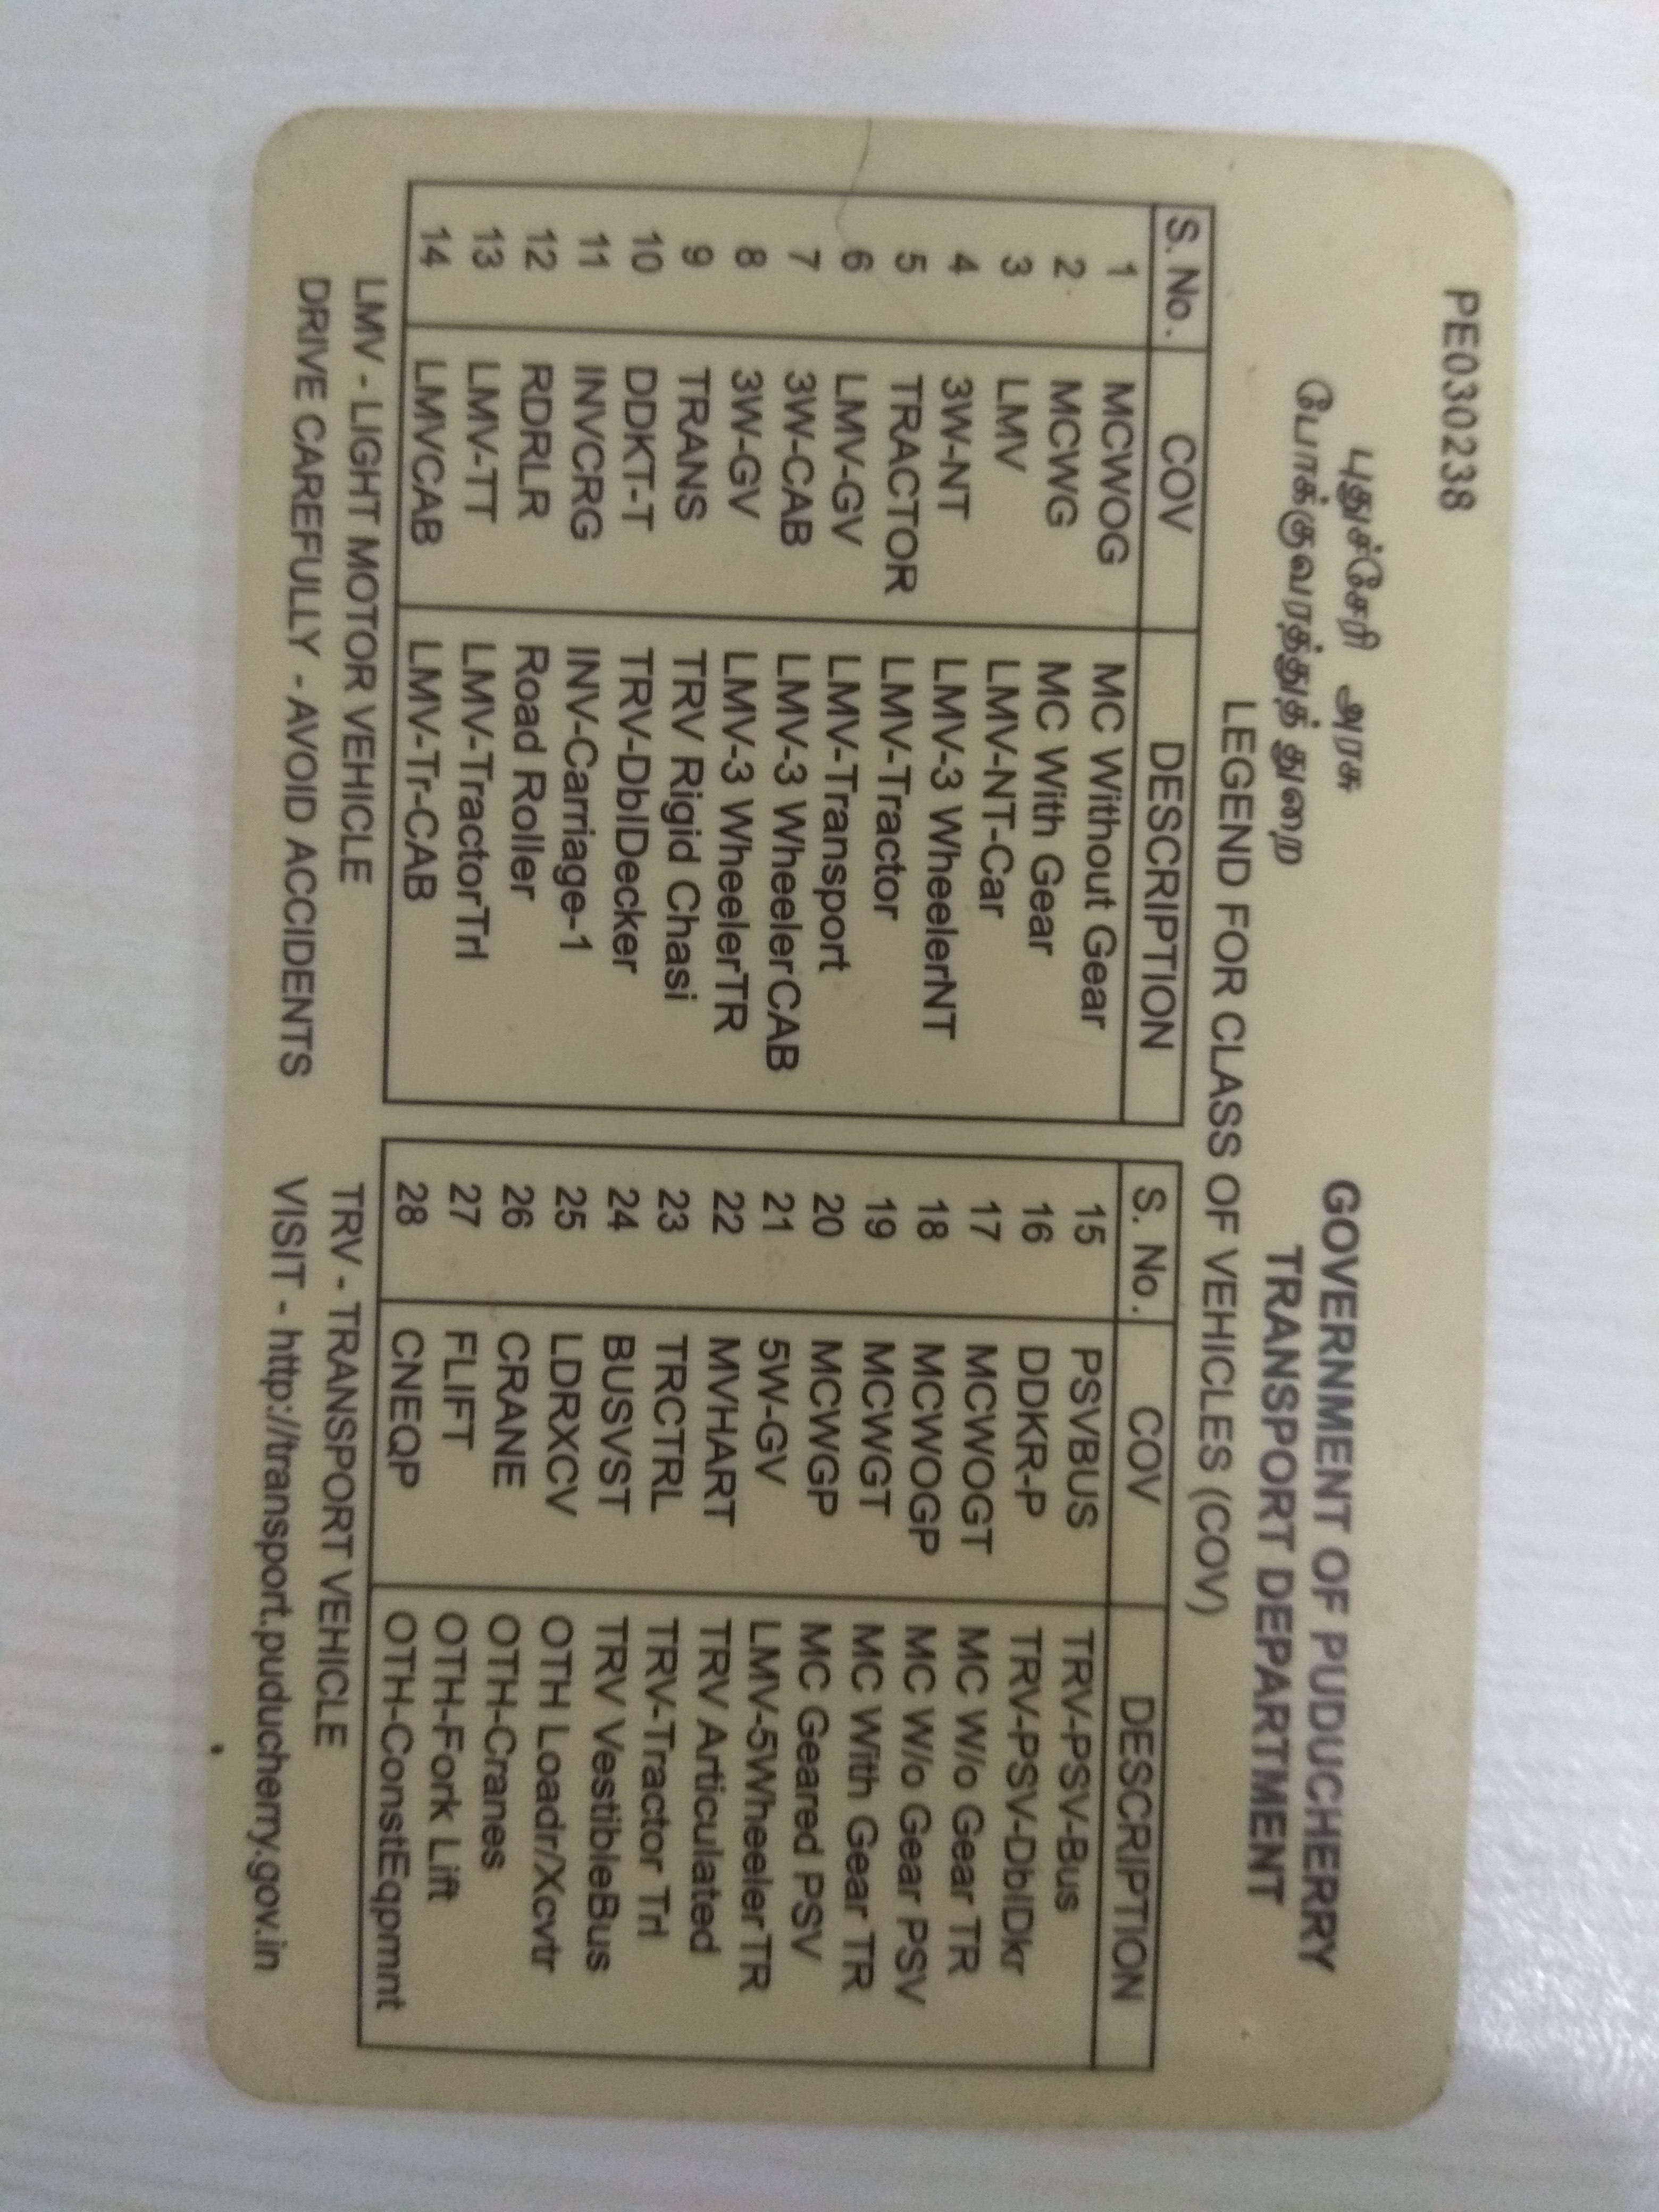 PE030238
புதுச்சேரி அரசு
போக்குவரத்துத் துறை
GOVERNMENT OF PUDUCHERRY
TRANSPORT DEPARTMENT
LEGEND FOR CLASS OF VEHICLES (COV)
S. No. COV DESCRIPTION
1 MCWOG MC Without Gear
2 MCWG MC With Gear
3 LMV LMV-NT-Car
4 3W-NT LMV-3 WheelerNT
5 TRACTOR LMV-Tractor
6 LMV-GV LMV-Transport
7 3W-CAB LMV-3 WheelerCAB
8 3W-GV LMV-3 WheelerTR
9 TRANS TRV Rigid Chasi
10 DDKT-T TRV-DblDecker
11 INVCRG INV-Carriage-1
12 RDRLR Road Roller
13 LMV-TT LMV-TractorTrl
14 LMVCAB LMV-Tr-CAB
S. No. COV DESCRIPTION
15 PSVBUS TRV-PSV-Bus
16 DDKR-P TRV-PSV-DblDkr
17 MCWOGT MC W/o Gear TR
18 MCWOGP MC W/o Gear PSV
19 MCWGT MC With Gear TR
20 MCWGP MC Geared PSV
21 5W-GV LMV-5WheelerTR
22 MVHART TRV Articulated
23 TRCTRL TRV-Tractor Trl
24 BUSVST TRV VestibleBus
25 LDRXCV OTH Loadr/Xcvtr
26 CRANE OTH-Cranes
27 FLIFT OTH-Fork Lift
28 CNEQP OTH-ConstEqpmnt
LMV - LIGHT MOTOR VEHICLE
TRV - TRANSPORT VEHICLE
DRIVE CAREFULLY - AVOID ACCIDENTS
VISIT - http://transport.puducherry.gov.in